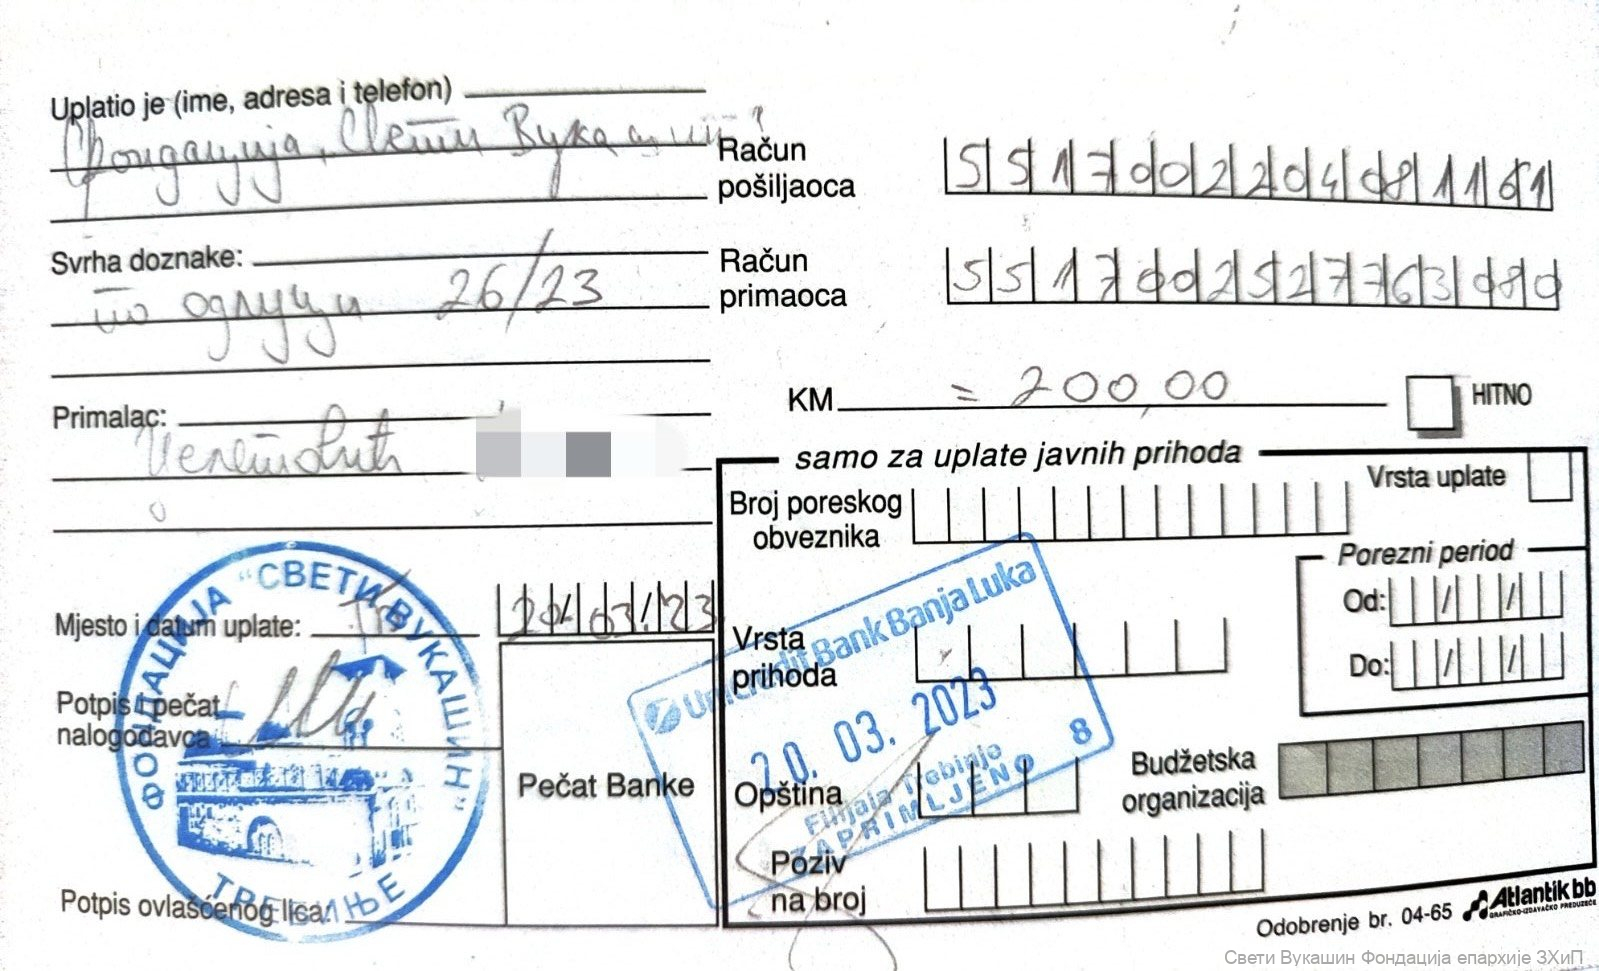 Uplatio je (ime, adresa i telefon)
Фондација „Свети Вукашин“
Račun
pošiljaoca
5517002204081161
Svrha doznake:
по одлуци 26/23
Račun
primaoca
5517002527763080
KM = 200,00
HITNO
Primalac:
samo za uplate javnih prihoda
Vrsta uplate
Broj poreskog
obveznika
Porezni period
Od: / /
Do: / /
ФОНДАЦИЈА "СВЕТИ ВУКАШИН"
ТРЕБИЊЕ
Mjesto i datum uplate:
20/03/23
Potpis i pečat
nalogodavca
Pečat Banke
Potpis ovlašćenog lica:
UniCredit Bank Banja Luka
20. 03. 2023
Filijala Trebinje 8
ZAPRIMLJENO
Vrsta
prihoda
Opština
Budžetska
organizacija
Poziv
na broj
Odobrenje br. 04-65
Atlantik bb
GRAFIČKO-IZDAVAČKO PREDUZEĆE
Свети Вукашин Фондација епархије ЗХиП